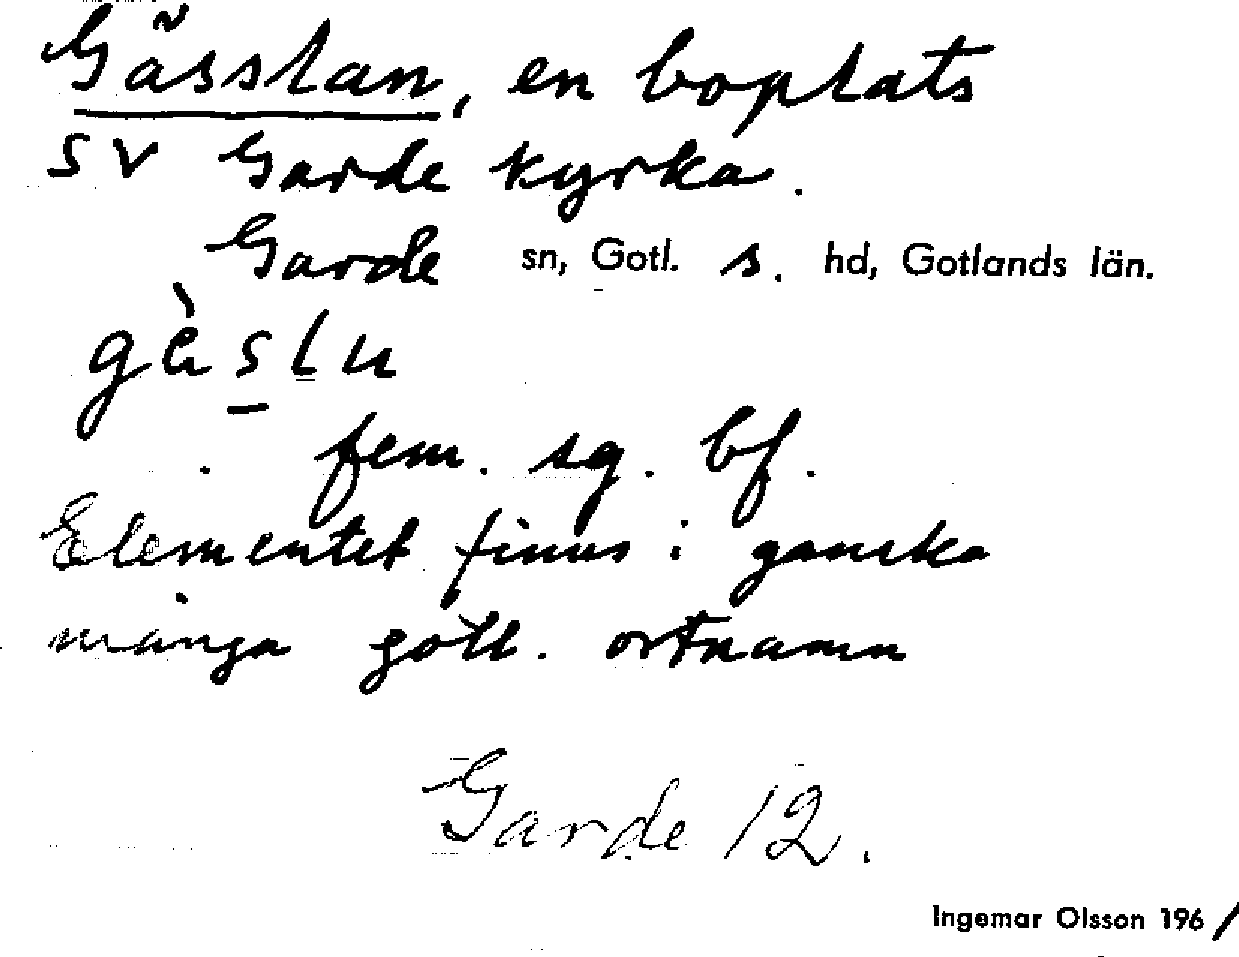 Gässlan, en boplats
SV Garde kyrka.
Garde sn, Gotl. s. hd, Gotlands län.
gèslu
fem. sg. bf.
Elementet finns i ganska
många gotl. ortnamn
Garde 12.
Ingemar Olsson 1961